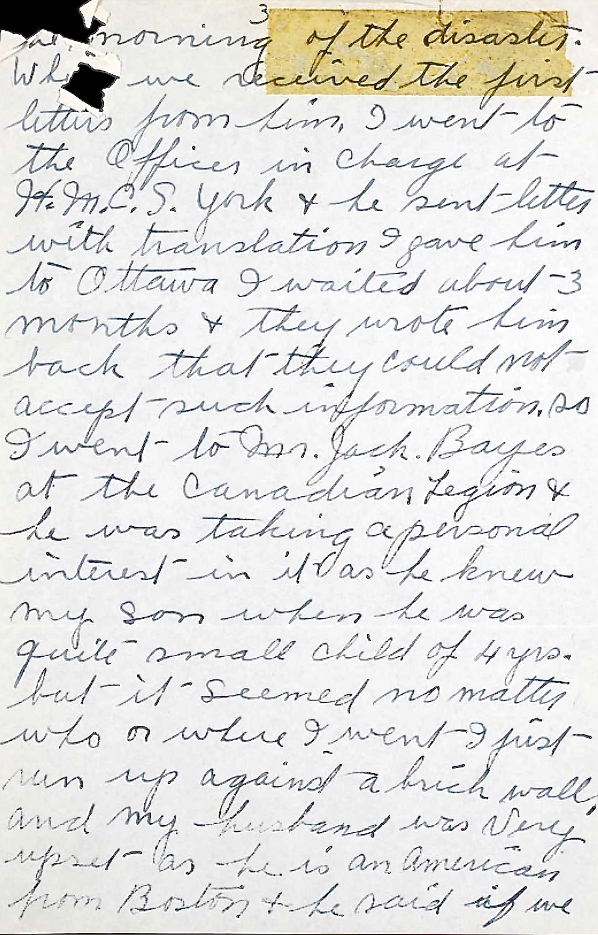 3
the morning of the disaster.
When we received the first
letters from him, I went to
the Officer in charge at
H.M.C.S. York & he sent letter
with translation I gave him
to Ottawa I waited about 3
months & they wrote him
back that they could not
accept such information, so
I went to Mr. Jack. Bayes
at the Canadian Legion &
he was taking a personal
interest in it as he knew
my son when he was
quite small child of 4 yrs.
but it seemed no matter
who or where I went I just
run up against a brick wall,
and my husband was Very
upset as he is an American
from Boston & he said if we